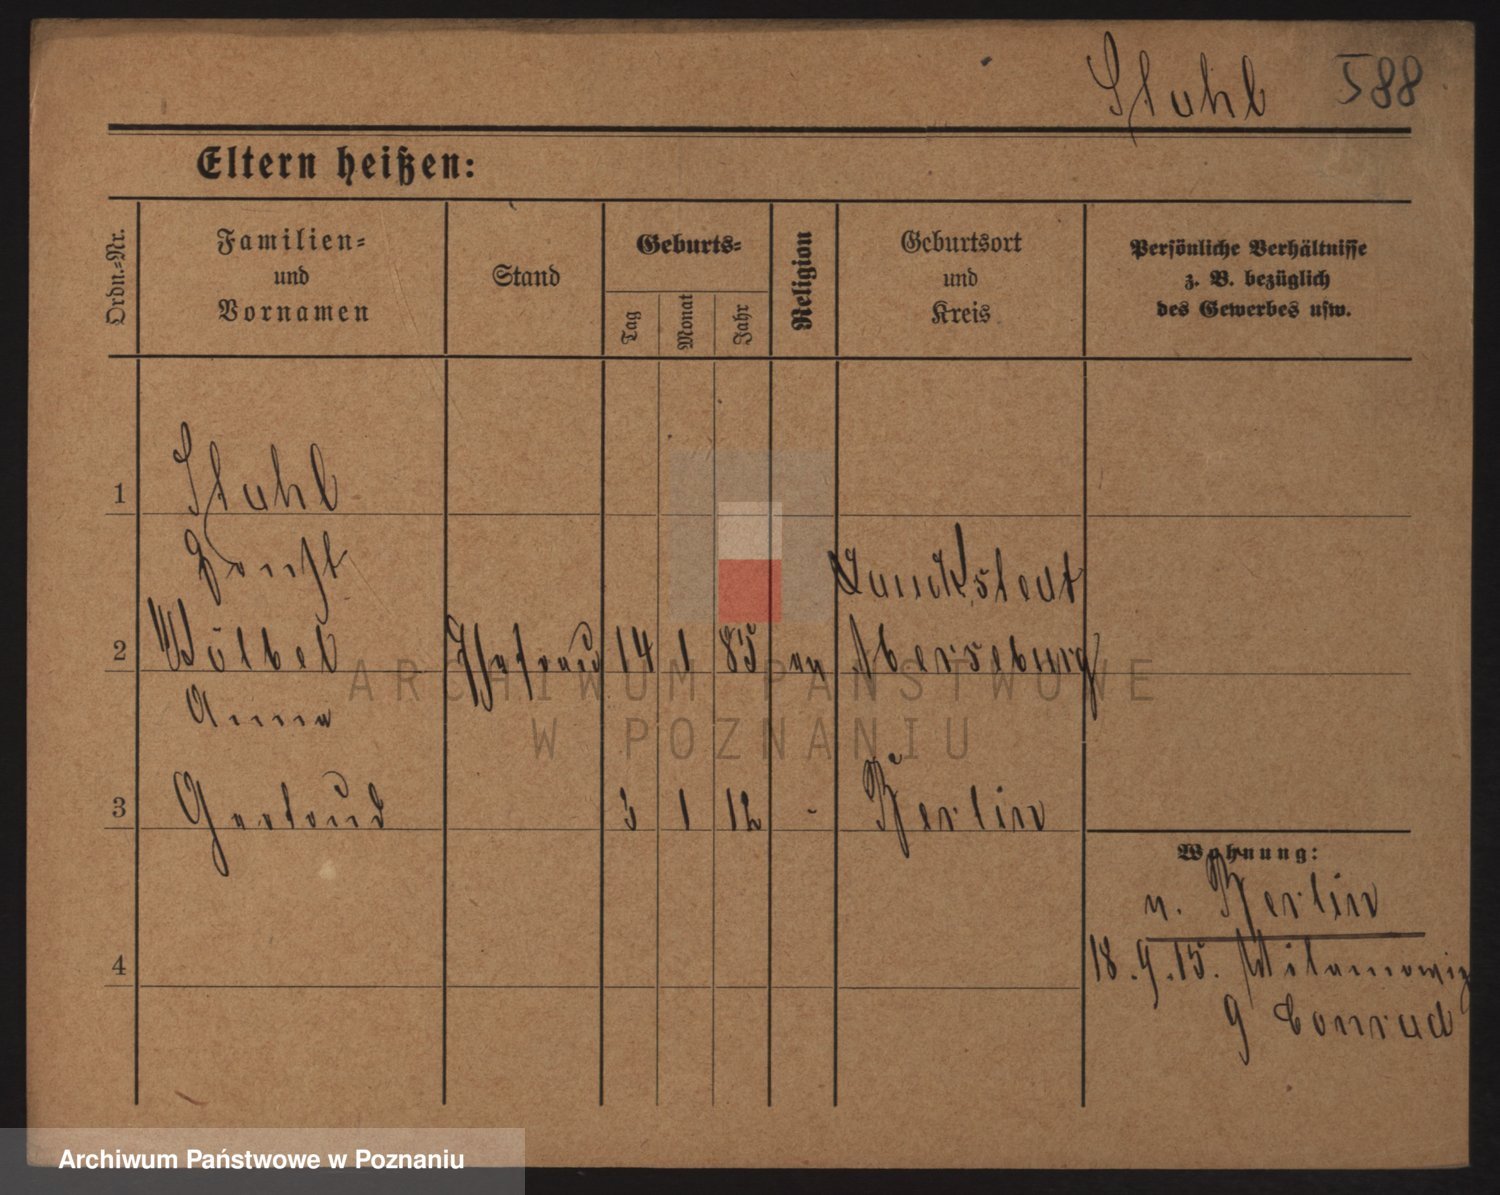 Stuhl 588
Eltern heißen:
Ordn.-Nr.
Familien-
und
Vornamen
Stand
Geburts-
Tag
Monat
Jahr
Religion
Geburtsort
und
Kreis
Persönliche Verhältnisse
z. B. bezüglich
des Gewerbes usw.
1 Stuhl
2 Wölbel Ehefrau 14 1 85 ev Merseburg
Anna
3 Gertrud 3 1 12 - Berlin
Wohnung:
n. Berlin
4
18.9.15.
Conrad
ARCHIWUM PAŃSTWOWE
W POZNANIU
Archiwum Państwowe w Poznaniu